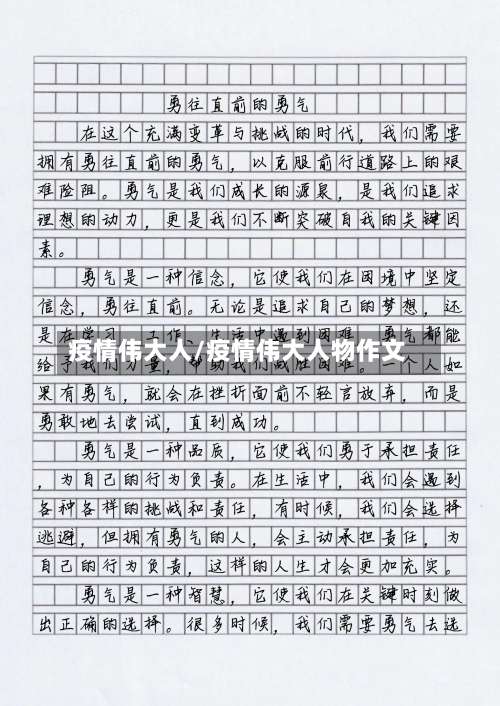 勇往直前的勇气
在这个充满变革与挑战的时代，我们需要
拥有勇往直前的勇气，以克服前行道路上的艰
难险阻。勇气是我们成长的源泉，是我们追求
理想的动力，更是我们不断突破自我的关键因
素。
勇气是一种信念，它使我们在困境中坚定
信念，勇往直前。无论是追求自己的梦想，还
是在学习、工作、生活中遇到困难，勇气都能
疫情伟大人/疫情伟大人物作文
给予我们力量，帮助我们战胜困难。一个人如
果有勇气，就会在挫折面前不轻言放弃，而是
勇敢地去尝试，直到成功。
勇气是一种品质，它使我们勇于承担责任
，为自己的行为负责。在生活中，我们会遇到
各种各样的挑战和责任，有时候，我们会选择
逃避，但拥有勇气的人，会主动承担责任，为
自己的行为负责，这样的人生才会更加充实。
勇气是一种智慧，它使我们在关键时刻做
出正确的选择。很多时候，我们需要勇气去选